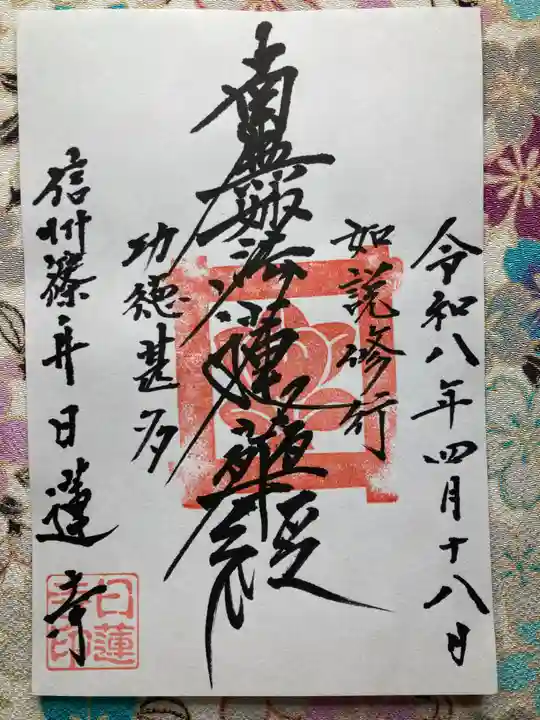 令和八年四月十八日
如説修行
南無妙法蓮華経
功徳甚多
信州篠井日蓮寺
日蓮
寺印